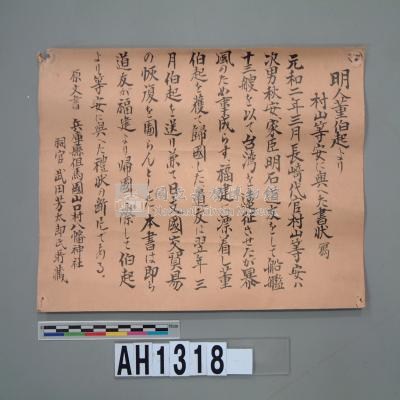 明人董伯起より
村山等安に與へた書狀 寫
元和二年三月長崎代官村山等安ハ
次男秋安家臣明石道友をして船艦
十三艘を以て台湾を遠征させたが暴
風のため董成らず、福建に漂着し董
伯起を獲て歸國した道友は翌年三
月伯起を送り旁て日支國交貿易
の恢復を圖らんとした本書は卽ち
道友が福建より帰國に際して伯起
より等安に與へた禮狀の斷片である、
原文書 兵庫縣但馬國山口村八幡神社
祠官 武田芳太郎氏所藏
AH1318